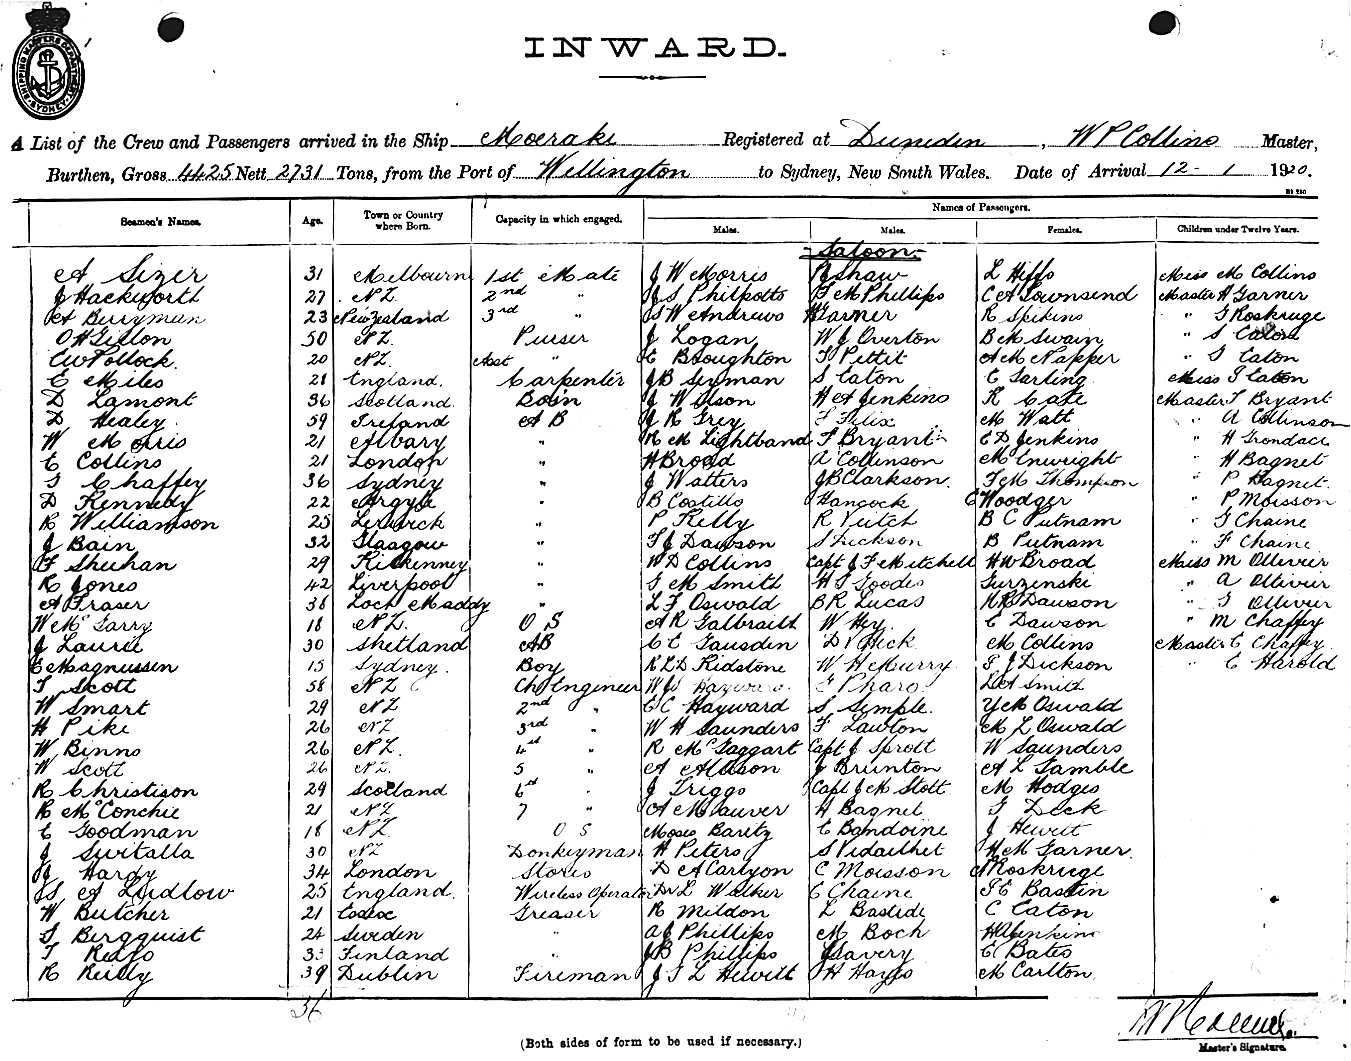 SHIPPING MASTERS DEPARTMENT SYDNEY
INWARD.
A List of the Crew and Passengers arrived in the Ship Moeraki Registered at Dunedin, W P Collins Master,
Burthen, Gross 4425 Nett 2731 Tons, from the Port of Wellington to Sydney, New South Wales. Date of Arrival 12 - 1 1920.
Seamen's Names. Age. Town or Country where Born. Capacity in which engaged. Names of Passengers.
Males. Males. Females. Children under Twelve Years.
Saloon.
A Sizer 31 Melbourn 1st Mate J W Morris Shaw L Hiffs Miss M Collins
J Hackworth 27 NZ. 2nd " J S Philpotts F M Phillips C A Townsend Master H Garner
A Berryman 23 New Zealand 3rd " S W Andrews H Garner R Spikins " G Roskruge
O H Gillon 50 NZ. Purser J Logan W J Overton B M Swain " S Eaton
C W Pollock. 20 NZ. Asst " E Boughton T Pettit A M Napper " G Eaton
E Miles 21 England. Carpenter J B Seyman S Eaton E Sarling Miss I Eaton
D Lamont 36 Scotland. Bosn J Wilson H A Jenkins R Cate Master T Bryant
D Healey 59 Ireland A B J R Grey F Felix M Watt " A Collinson
W Morris 21 Albury " R M Lightband F Bryant E D Jenkins " H Grondace
E Collins 21 London " H Broad A Collinson M Enwright " H Bagnet
S Chaffey 36 Sydney " J Watters J B Clarkson. F M Thompson " P Bagnet.
D Kennedy 22 Argyle " B Costills Hancock E Woodger " P Moisson
R Williamson 25 Lerwick " P Kelly R Veitch B C Putnam " G Chaine
J Bain 32 Glasgow " F J Dawson S Dickson B Putnam " F Chaine
F Sheehan 29 Kilkenney " W D Collins Capt J F Mitchell H W Broad Miss M Ollivier
R Jones 42 Liverpool " G M Smith H G Goodes Gurzenski " A Ollivier
A Fraser 38 Loch Maddy " L F Oswald B R Lucas N R Dawson " G Ollivier
W McGarry 18 NZ. O S A R Galbraith W Hey. E Dawson " M Chaffey
J Laurie 30 Shetland AB C E Gausden D V Hick M Collins Master C Chaffey
E Magnussen 15 Sydney. Boy R L D Kidstone W H McMurry. F J Dickson " E Harold
T Scott 58 NZ Ch Engineer W J Hayward. E Pharo L A Smith
W Smart 29 NZ 2nd " E C Hayward S Semple. Y M Oswald
H Pike 26 NZ 3rd " W H Saunders F Lawton M L Oswald
W Binns 26 NZ. 4th " R McTaggart Capt J Sprott W Saunders
W Scott 26 NZ. 5 " A Allison J Brunton A L Gamble
R Christison 29 Scotland 6th " J Triggs Capt J M Stott M Hodges
R McConchie 21 NZ 7 " A McTauver H Bagnet G Deck
E Goodman 18 NZ. O S Moses Baritz E Bandoine J Hewitt
J Switalla 30 NZ Donkeyman H Peters S Vidailhet H M Garner.
J Hardy 34 London Stores D A Carlyon C Moisson A Roskruge
S A Ludlow 25 England. Wireless Operator Dr L Walker E Chaine S E Bastin
W Butcher 21 Greaser R Mildon L Bastide C Eaton
S Bergquist 24 Sweden " A J Phillips M Boch H A Jenkins
T 33 Finland " J B Phillips J Savery E Bates
R Reidy 39 Dublin Fireman J T L Hewitt H Hayes M Carlton.
36
Master's Signature.
(Both sides of form to be used if necessary.)